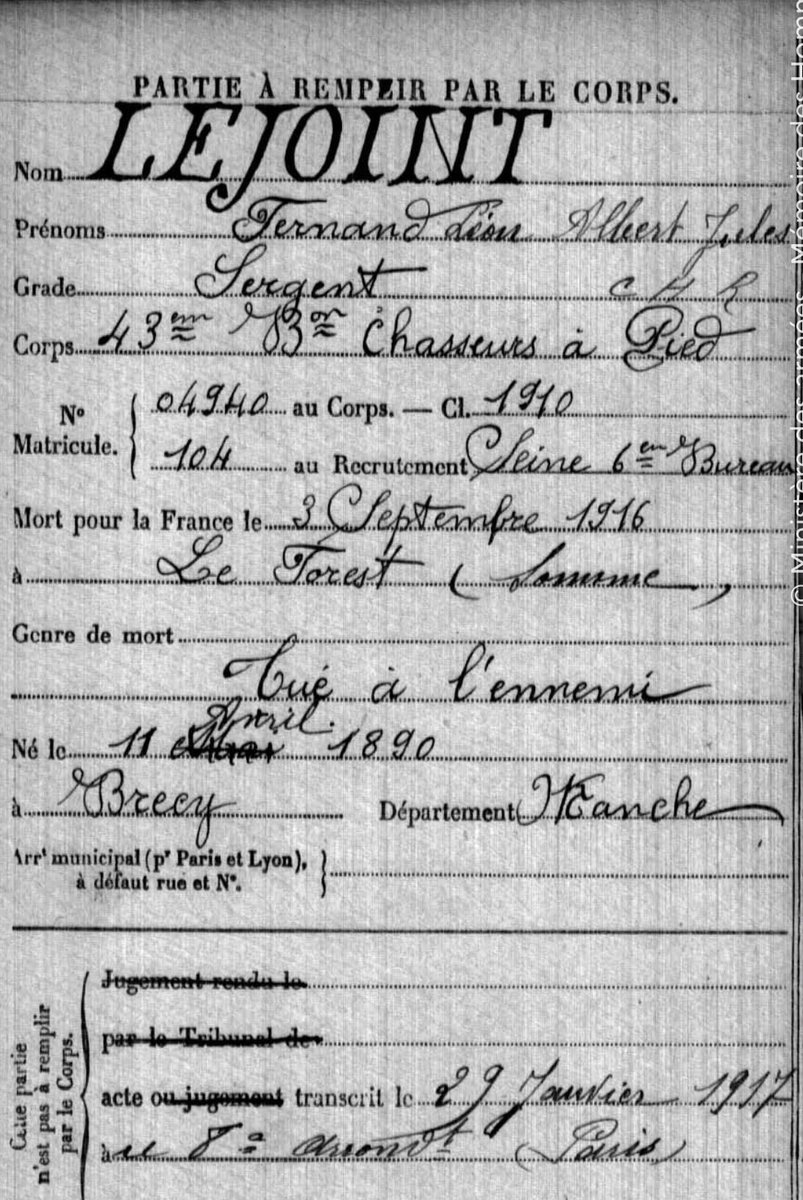 PARTIE À REMPLIR PAR LE CORPS.
Nom LEJOINT
Prénoms Fernand Léon Albert Jules
Grade Sergent C H R
Corps 43ème Bon Chasseurs à Pied
No Matricule. 04940 au Corps. — Cl. 1910
104 au Recrutement Seine 6em Bureau
Mort pour la France le 3 Septembre 1916
à Le Forest (Somme)
Genre de mort
Tué à l'ennemi
Avril.
Né le 11 Mai 1890
à Brecy Département Manche
Arrt municipal (pr Paris et Lyon), à défaut rue et No.
Cette partie n'est pas à remplir par le Corps.
Jugement rendu le
par le Tribunal de
acte ou jugement transcrit le 29 Janvier 1917
à 8e arrondt (Paris)
© Ministère des armées - Mémoire des Homm